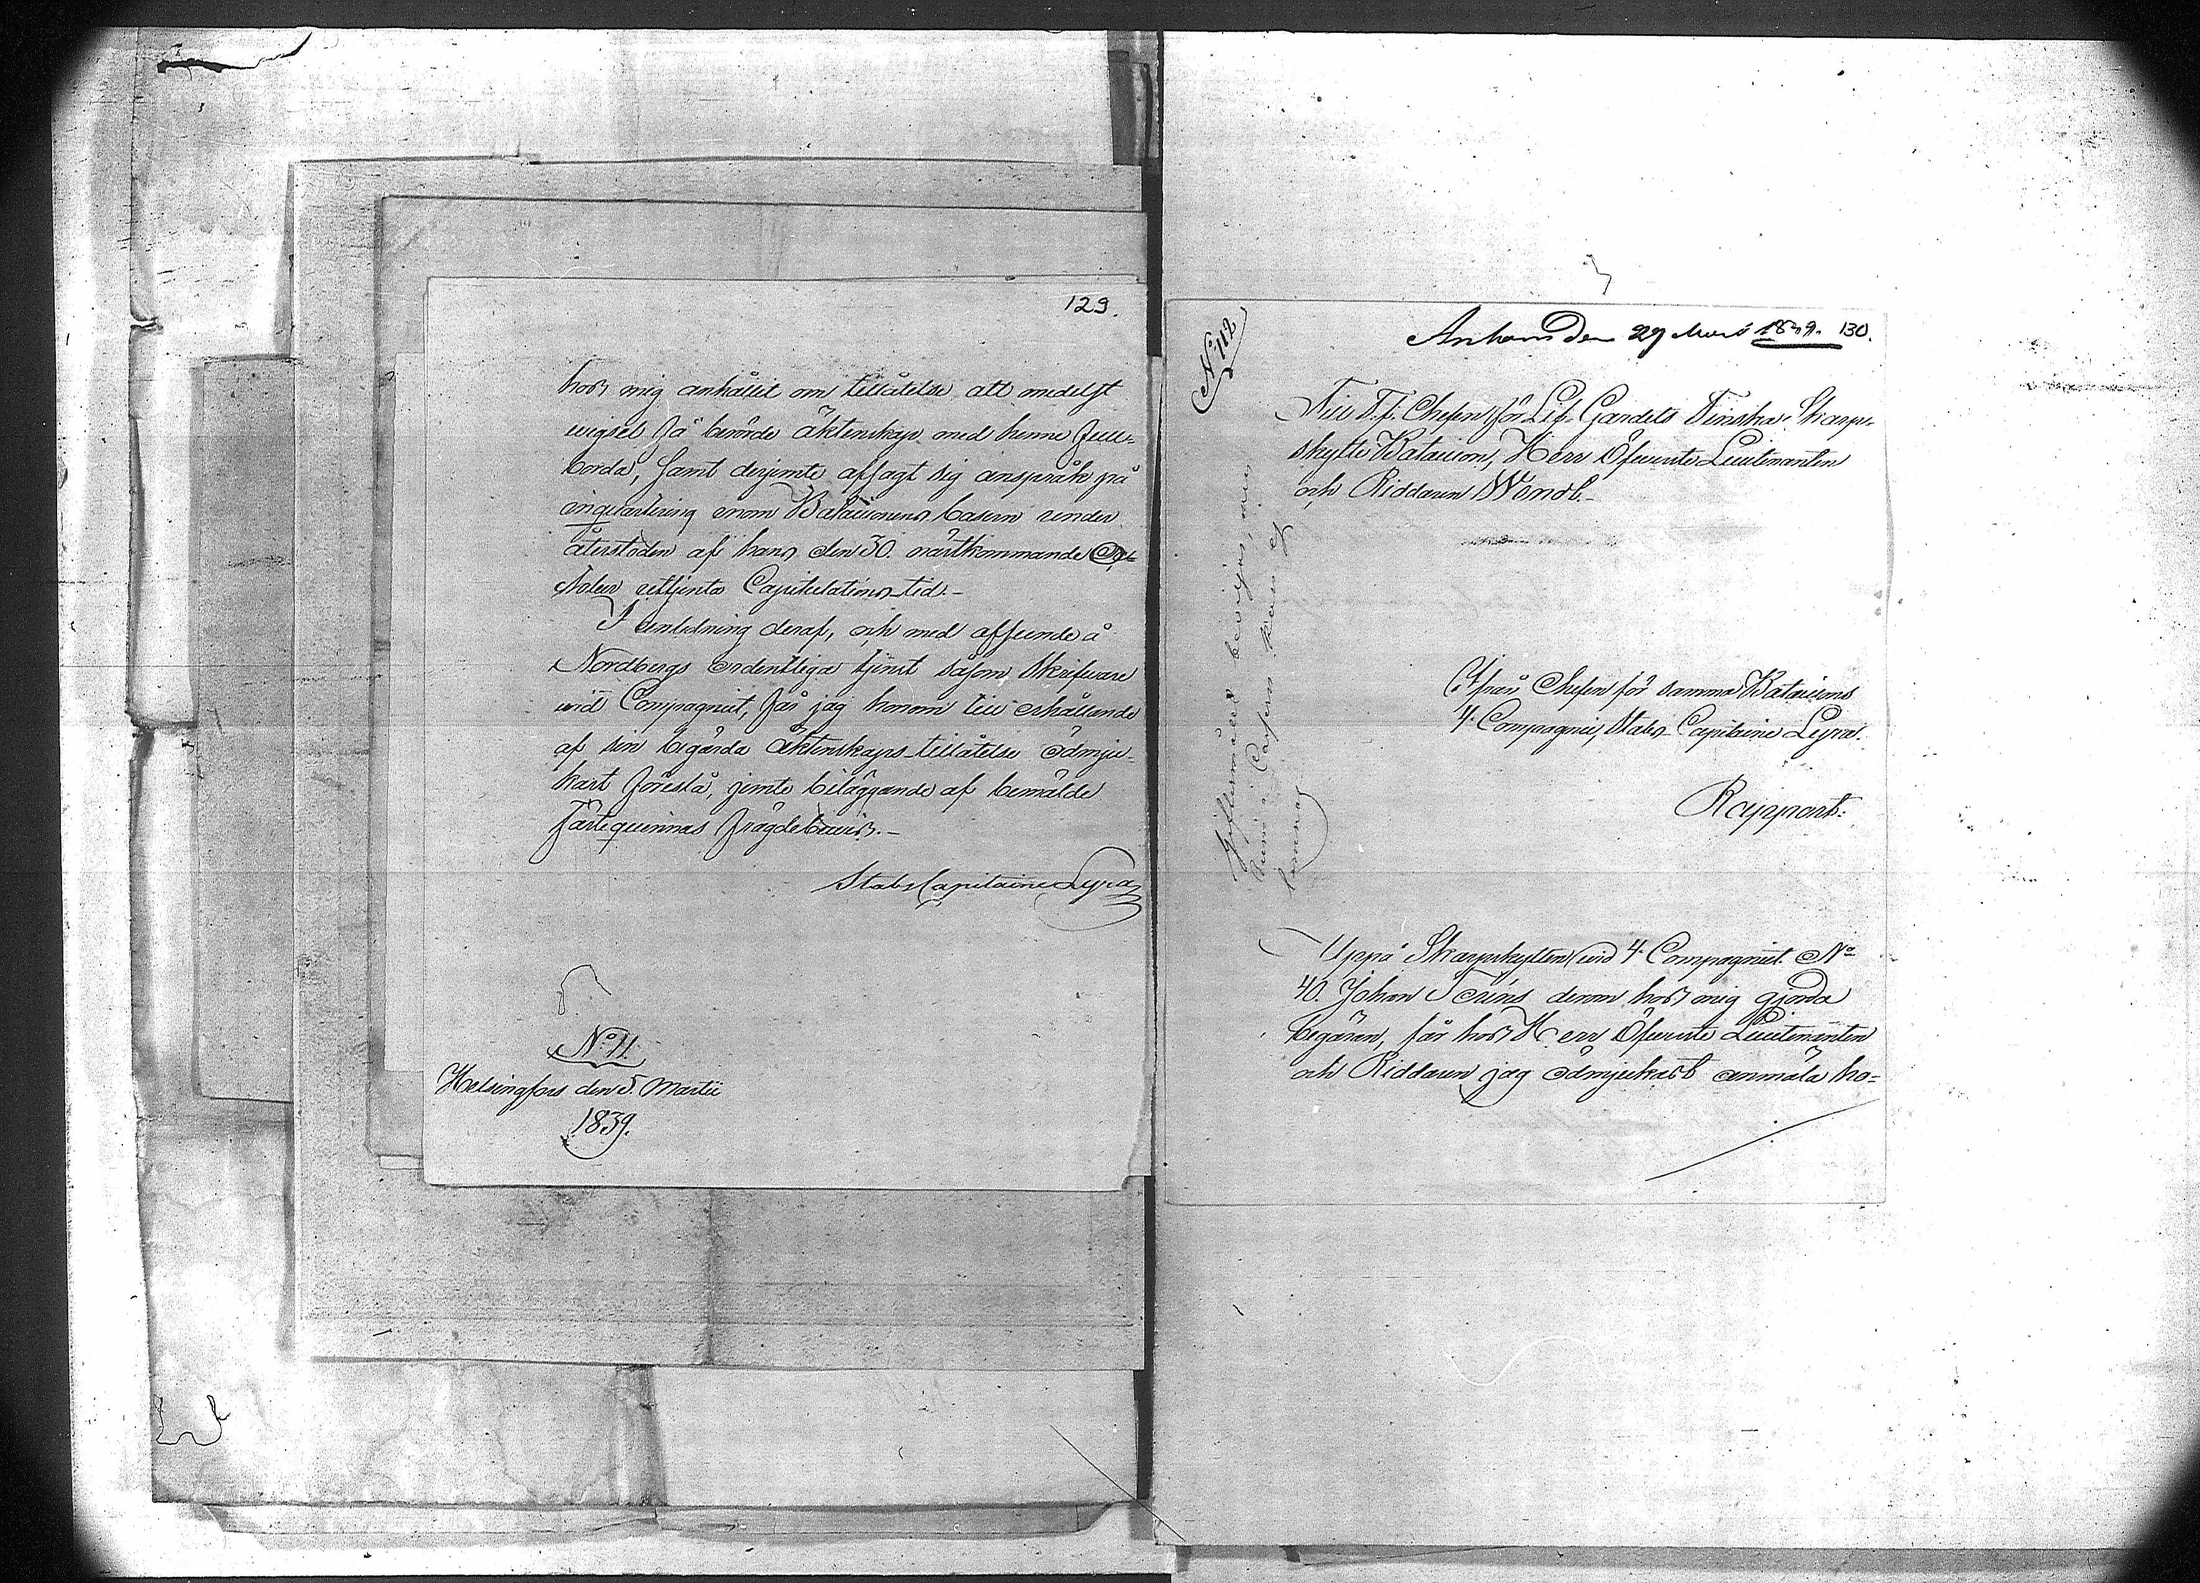 129.
hos mig anhållit om tillåtelse att medelst
wigsel få beröra äktenskap med henne full-
borda, samt derjemte afsagt sig anspråk på
inqvartering inom Bataillonens Casern under
återstoden af hans den 30. nästkommande Oc-
tober utlupna Capitulations-tid.-
I anledning deraf, och med afseende å
Nordbergs ordentliga tjenst såsom Skrifware
wid Compagniet, får jag honom till erhållande
af sin begärda äktenskaps-tillåtelse ödmju-
kast föreslå, jemte biläggande af bemälde
fästeqwinnas frägdebewis.-
StabsCapitaine Lyra
No 11.
Helsingfors den 5. Martii
1839.
No 112
Ankom den 29 Mars 1839. 130.
Till T.f. Chefen för Lif-Gardets Finska Skarp-
skytte Bataillon, Herr Öfwerste Lieutenanten
och Riddaren Wendt.-
Ifrån Chefen för samma Bataillons
4. Compagnie, Stabs-Capitaine Lyra.
Rapport:
Giftermålet beviljas, men
hunn i Casern kan ej
lemnas
Uppå Skarpskytten wid 4. Compagniet No
40. Johan Törins derom hos mig gjorda
begäran, får hos Herr Öfwerste Lieutenanten
och Riddaren jag ödmjukast anmäla ho-